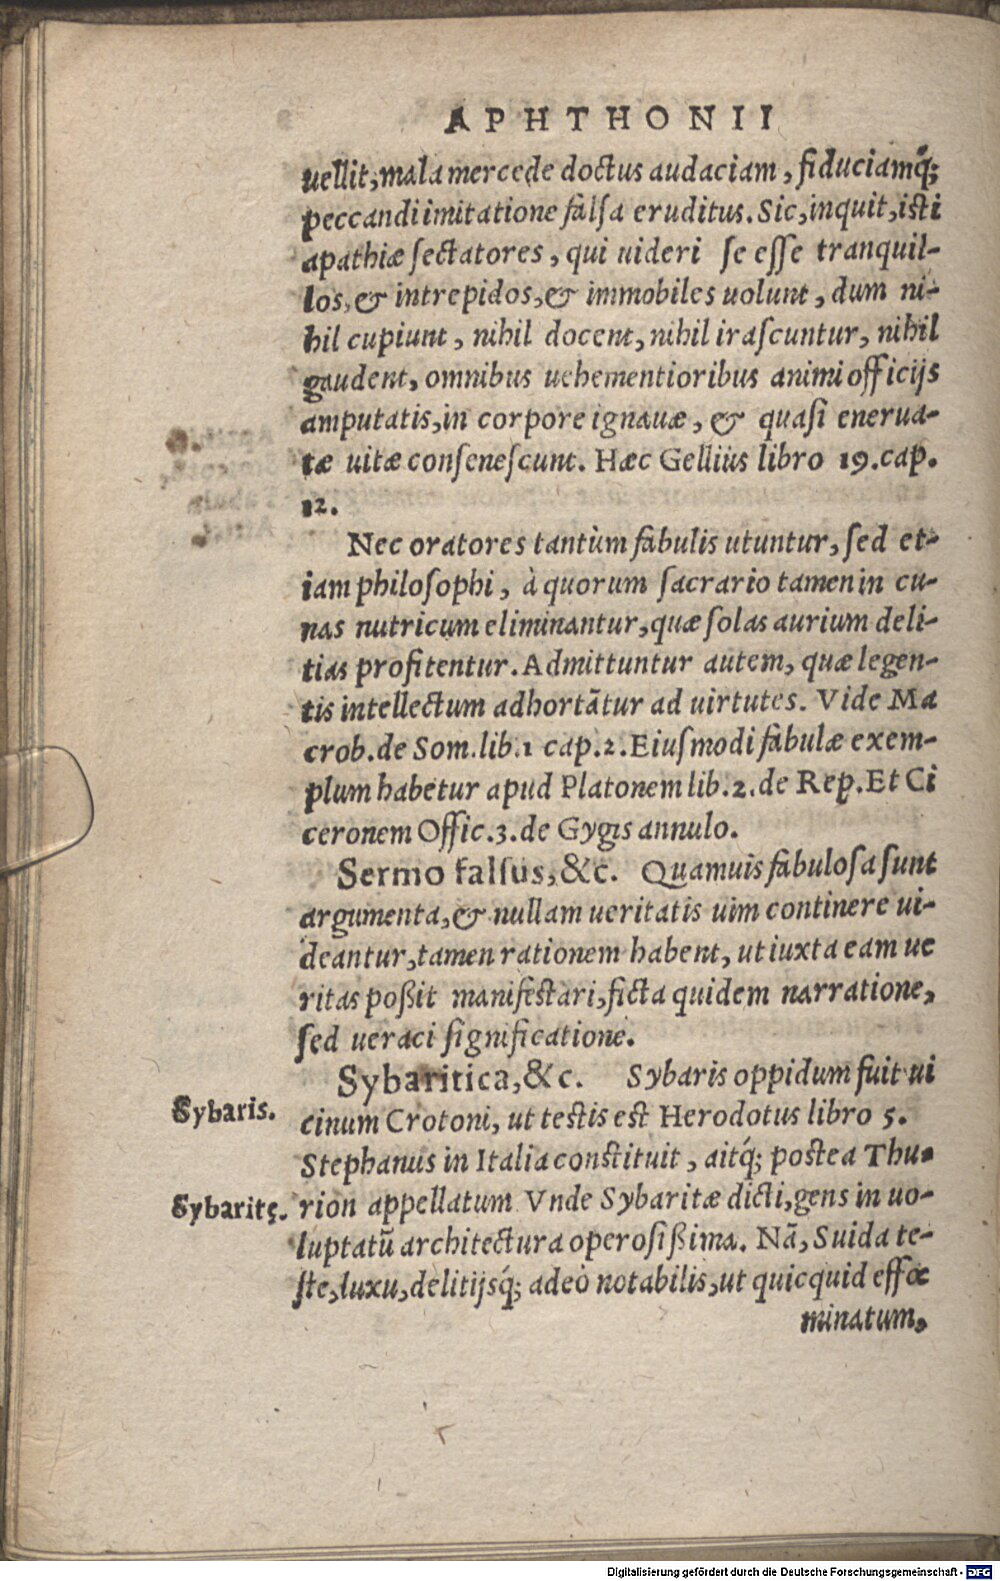 APHTHONII
uellit, mala mercede doctus audaciam, fiduciamq́;
peccandi imitatione falsa eruditus. Sic, inquit, isti
apathiæ sectatores, qui uideri se esse tranquil-
los, & intrepidos, & immobiles uolunt, dum ni-
hil cupiunt, nihil docent, nihil irascuntur, nihil
gaudent, omnibus uehementioribus animi officijs
amputatis, in corpore ignauæ, & quasi enerua-
tæ uitæ consenescunt. Hæc Gellius libro 19. cap.
12.
Nec oratores tantùm fabulis utuntur, sed et-
iam philosophi, à quorum sacrario tamen in cu-
nas nutricum eliminantur, quæ solas aurium deli-
tias profitentur. Admittuntur autem, quæ legen-
tis intellectum adhortãtur ad uirtutes. Vide Ma
crob. de Som. lib. 1 cap. 2. Eiusmodi fabulæ exem-
plum habetur apud Platonem lib. 2. de Rep. Et Ci
ceronem Offic. 3. de Gygis annulo.
Sermo falsus, &c. Quamuis fabulosa sunt
argumenta, & nullam ueritatis uim continere ui-
deantur, tamen rationem habent, ut iuxta eam ue
ritas poßit manifestari, ficta quidem narratione,
sed ueraci significatione.
Sybaritica, &c. Sybaris oppidum fuit ui
Sybaris.
cinum Crotoni, ut testis est Herodotus libro 5.
Stephanus in Italia constituit, aitq́; postea Thu-
Sybaritę.
rion appellatum Vnde Sybaritæ dicti, gens in uo-
luptatũ architectura operosißima. Nã, Suida te-
ste, luxu, delitijsq́; adeò notabilis, ut quicquid effœ
minatum,
Digitalisierung gefördert durch die Deutsche Forschungsgemeinschaft - DFG